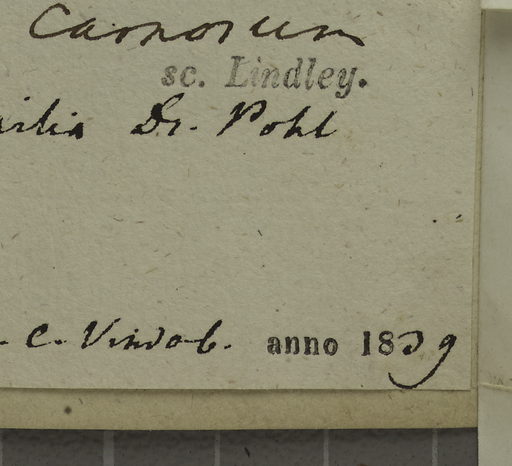 Carnosum
sc. Lindley.
silia Dr. Pohl
. C. Vindob. anno 1839